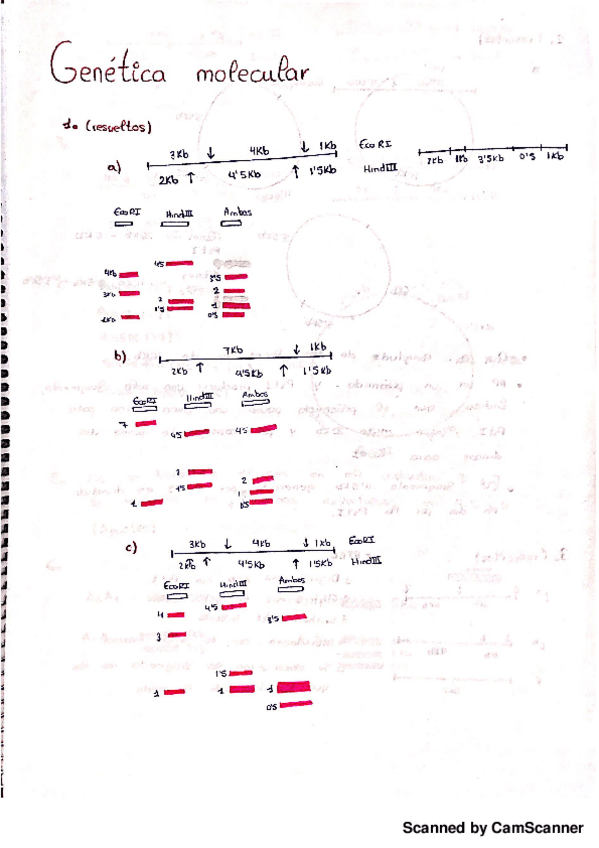 Genética molecular
1. (resueltos)
a)
3Kb ↓ 4Kb ↓ 1Kb EcoRI
2Kb ↑ 4'5Kb ↑ 1'5Kb HindIII
2Kb 1Kb 3'5Kb 0'5 1Kb
EcoRI HindIII Ambos
4Kb 4'5 3'5
3Kb 2 2
1'5 1
0'5
b)
7Kb ↓ 1Kb
2Kb ↑ 4'5Kb ↑ 1'5Kb
EcoRI HindIII Ambos
7 4'5 4'5
2 2
1'5 1
1 0'5
c)
3Kb ↓ 4Kb ↓ 1Kb EcoRI
↑ 4'5Kb ↑ 1'5Kb HindIII
EcoRI HindIII Ambos
4 4'5 3'5
3
1'5
1 1 1
0'5
Scanned by CamScanner